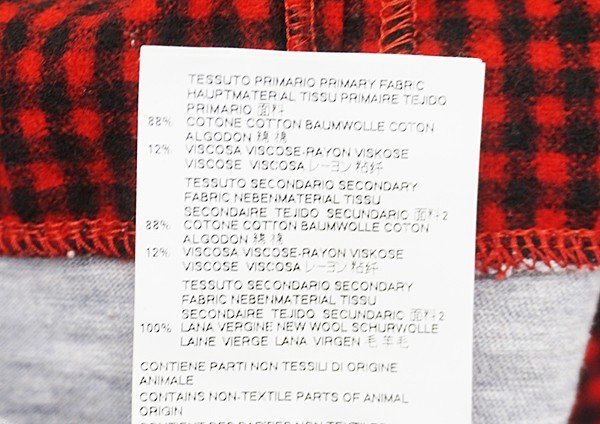 TESSUTO PRIMARIO PRIMARY FABRIC
HAUPTMATERIAL TISSU PRIMAIRE TEJIDO
PRIMARIO 面料
88% COTONE COTTON BAUMWOLLE COTON
ALGODON 綿 棉
12% VISCOSA VISCOSE-RAYON VISKOSE
VISCOSE VISCOSA レーヨン 粘纤
TESSUTO SECONDARIO SECONDARY
FABRIC NEBENMATERIAL TISSU
SECONDAIRE TEJIDO SECUNDARIO 面料2
88% COTONE COTTON BAUMWOLLE COTON
ALGODON 綿 棉
12% VISCOSA VISCOSE-RAYON VISKOSE
VISCOSE VISCOSA レーヨン 粘纤
TESSUTO SECONDARIO SECONDARY
FABRIC NEBENMATERIAL TISSU
SECONDAIRE TEJIDO SECUNDARIC 面料2
100% LANA VERGINE NEW WOOL SCHURWOLLE
LAINE VIERGE LANA VIRGEN 毛 羊毛
CONTIENE PARTI NON TESSILI DI ORIGINE
ANIMALE
CONTAINS NON-TEXTILE PARTS OF ANIMAL
ORIGIN